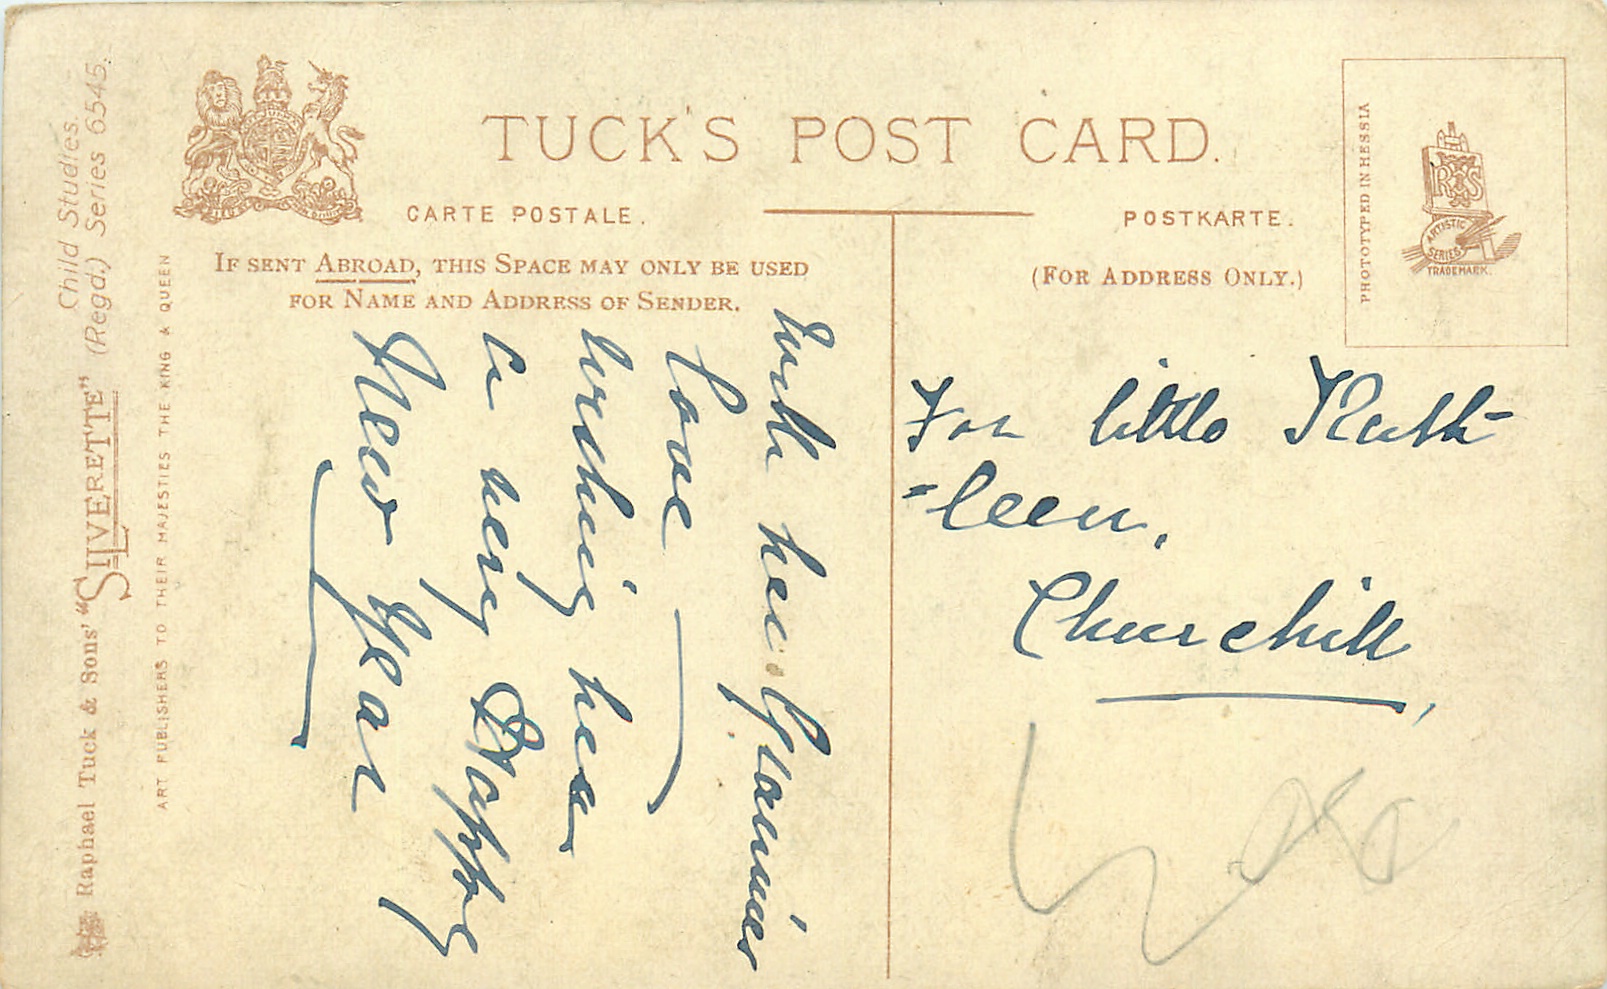 TUCK'S POST CARD.
CARTE POSTALE.
POSTKARTE.
IF SENT ABROAD, THIS SPACE MAY ONLY BE USED
FOR NAME AND ADDRESS OF SENDER.
(FOR ADDRESS ONLY.)
PHOTOTYPED IN HESSIA
ARTISTIC
SERIES
TRADE MARK.
With her Grannies
love
wishing her
a very Happy
New Year
For little Kath-
-leen,
Churchill,
ART PUBLISHERS TO THEIR MAJESTIES THE KING & QUEEN
Raphael Tuck & Sons' "SILVERETTE" (Regd.) Series 6545.
Child Studies.